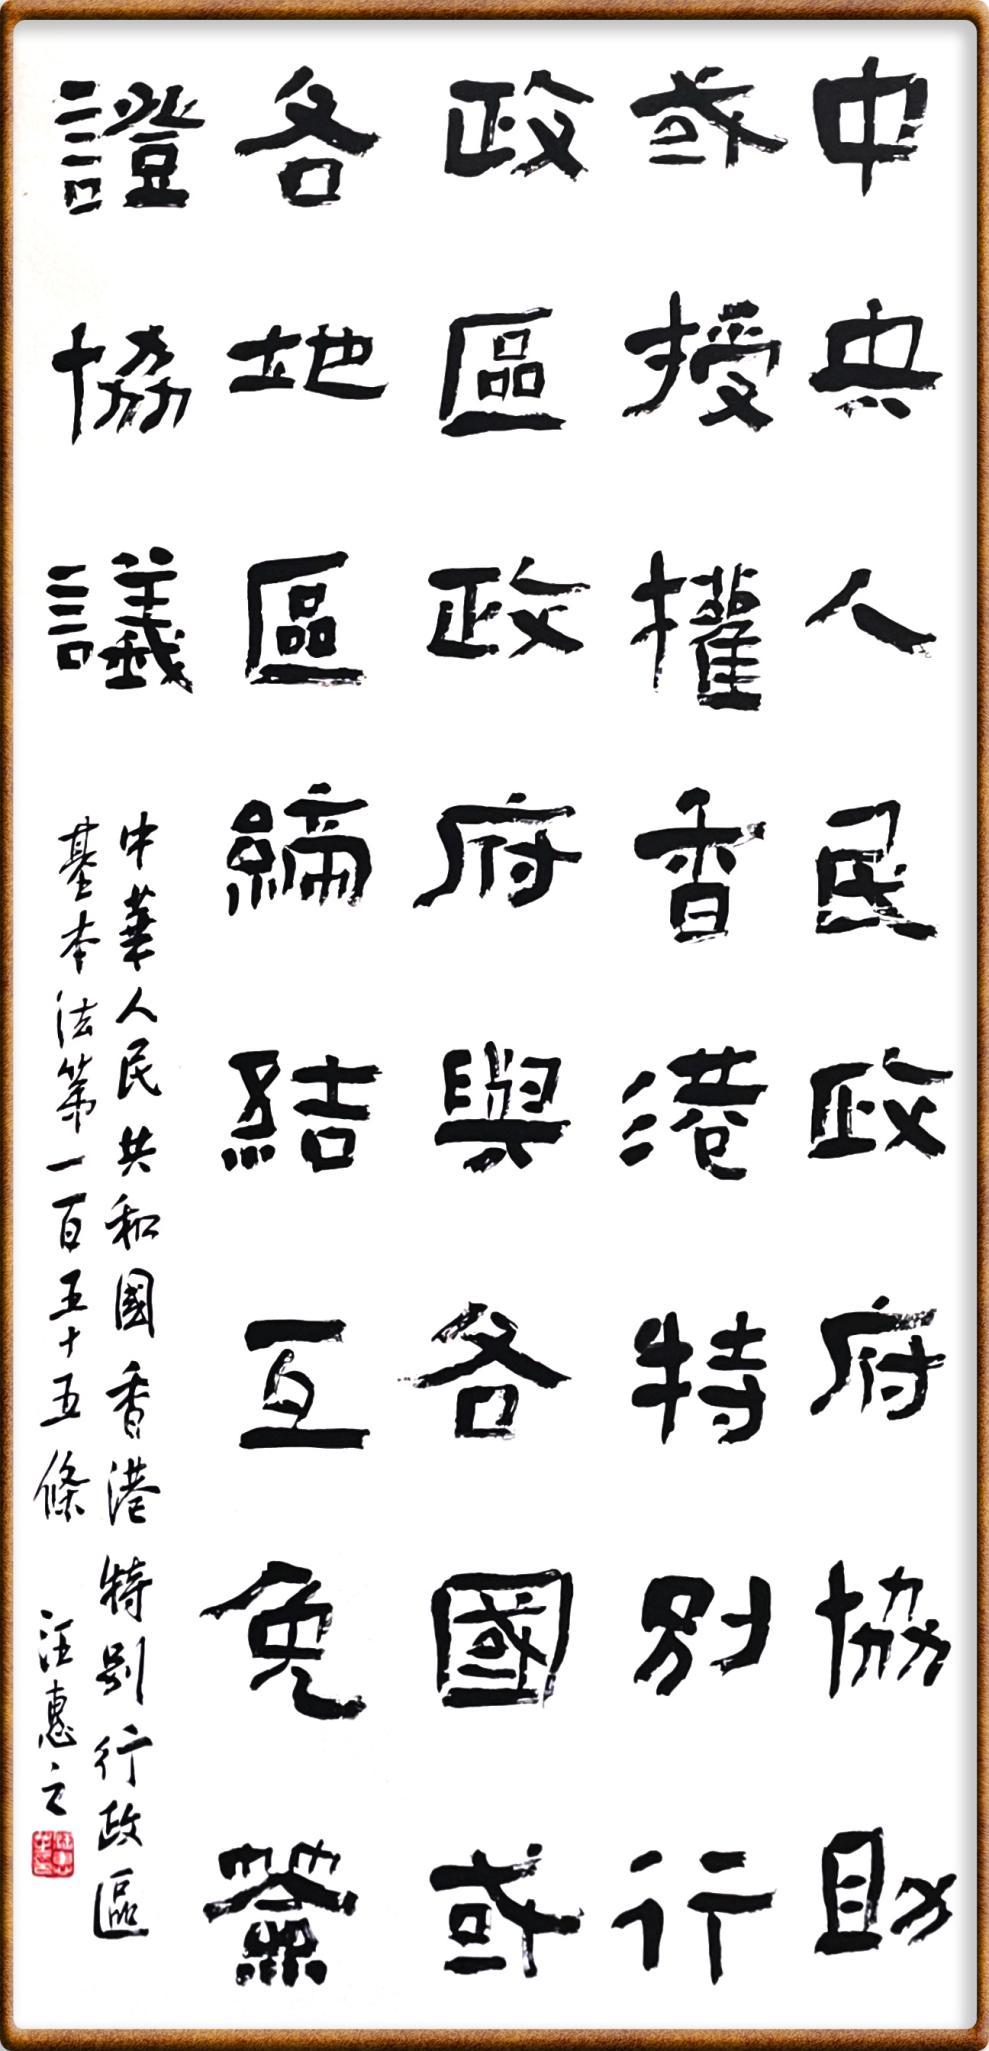 中央人民政府協助
或授權香港特別行
政區政府與各國或
各地區締結互免簽
證協議
中華人民共和國香港特別行政區
基本法第一百五十五條
汪惠之